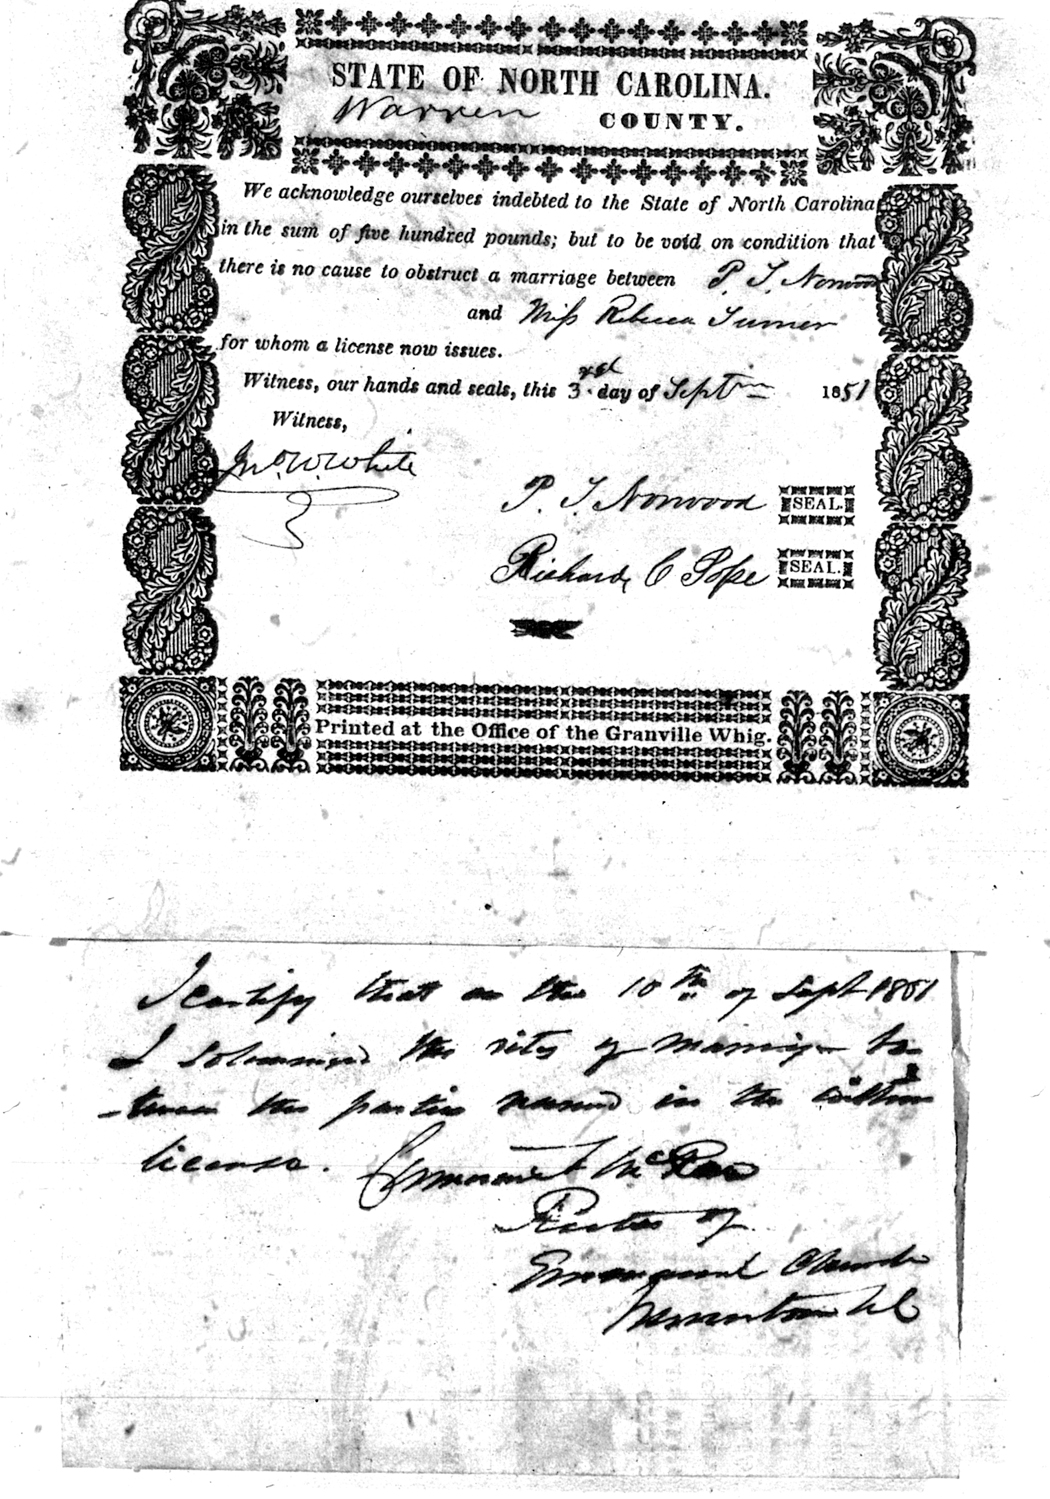 STATE OF NORTH CAROLINA.
Warren COUNTY.
We acknowledge ourselves indebted to the State of North Carolina
in the sum of five hundred pounds; but to be void on condition that
there is no cause to obstruct a marriage between P. T. Norwood
and Miss Rebecca Turner
for whom a license now issues.
Witness, our hands and seals, this 3rd day of Septm 1851
Witness,
Jno W. White
P. T. Norwood SEAL.
Richard C Pope SEAL.
Printed at the Office of the Granville Whig.
I certify that on the 10th of Sept 1851
I solemnized the rites of marriage be-
-tween the parties named in the within
license. McRae
Rector of
Emmanuel Church
Warrenton NC